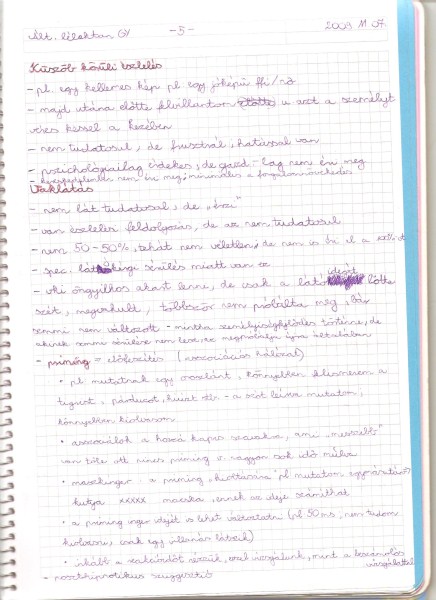 Ált. lélektan GY -5- 2009 11 07.
Küszöb körüli észlelés
- pl. egy kellemes kép pl egy jóképű ffi/nő
- majd utána előtte felvillantom u azt a személyt
véres késsel a kezében
- nem tudatosul, de frusztrál, hatással van
- pszichológiailag érdekes, de gazd-lag nem éri meg
nem éri meg, minimális a forgalomnövekedés
Vaklátás
- nem lát tudatosan, de „érzi”
- van észlelési feldolgozás, de az nem tudatosul
- nem 50-50%, tehát nem véletlen, de nem is éri el a
- spec. látókérgi sérülés miatt van ez
- vki öngyilkos akart lenne, de csak a látóidegét lőtte
szét, megvakult, többször nem próbálta meg, bár
semmi nem változott - mintha személyiségfejlődés történne, de
akinek semmi sérülése nem lesz, ez megpróbálja újra általában
- priming = előfeszítés (asszociációs hálózat)
• pl mutatnak egy oroszlánt, könnyebben felismerem a
tigrist, párducot, hiúzt stb - a szót leírva mutatom,
könnyebben kiolvasom
• asszociálok a hozzá kapcs szavakra, ami „messzebb”
van tőle ott nincs priming v. nagyon sok idő múlva
• maszkinger: a priming kioltására pl mutatom egymásután
kutya xxxxx macska, ennek az ideje számíthat
• a priming inger idejét is lehet változtatni (pl 50 ms, nem tudom
kiolvasni, csak egy villanás látszik)
• inkább a reakcióidőt nézzük, ezzel vizsgálunk, mint a beszámolós
vizsgálattal
- poszthipnotikus szuggesztió